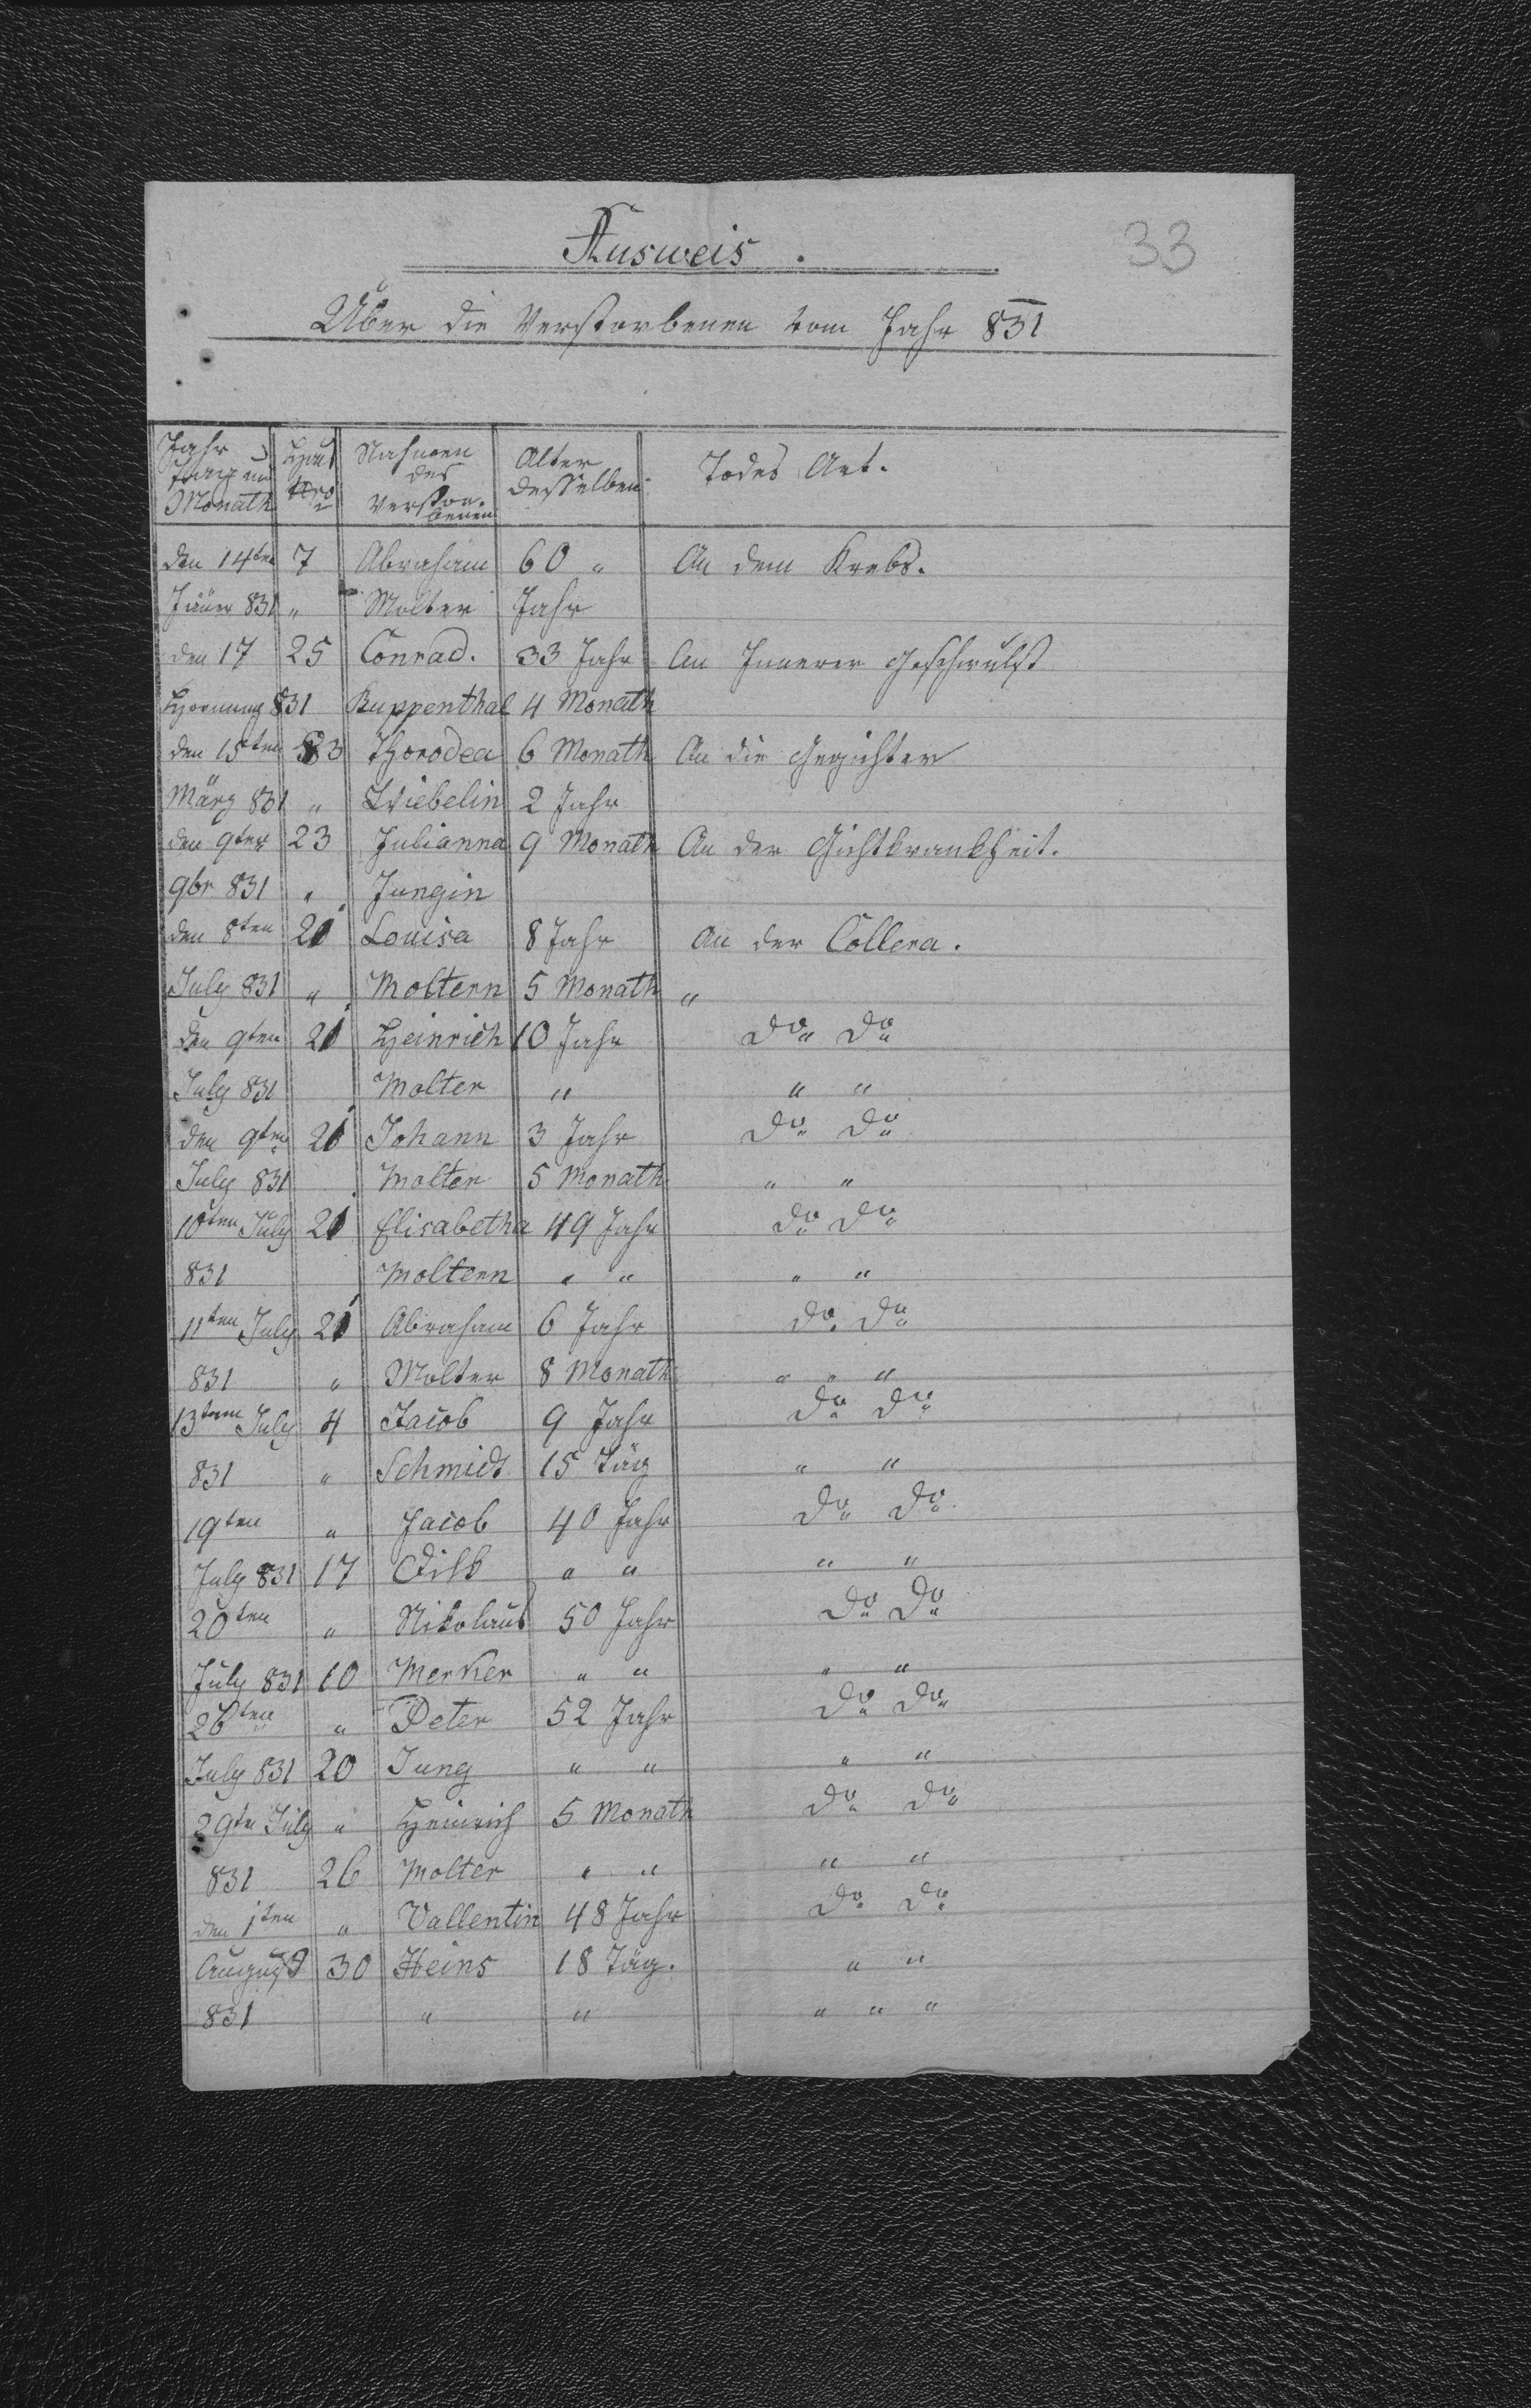 Ausweis.
33
Über die Verstorbenen vom Jahr 831
Jahr Tag und Monath | Haus Nro | Nahmen des Verstorbenen | Alter desselben | Todes Art.
den 14ten 7 Abraham 60 " An dem Krebs.
Jäner 831 " Molter Jahr
den 17 25 Conrad. 33 Jahr An Innerer Geschwulst
Hornung 831 Ruppenthal 4 Monath
den 15ten 33 Thorodea 6 Monath An die Gegichter
März 831 " Wiebelin 2 Jahr
den 9ten 23 Julianna 9 Monath An der Gichtkrankheit.
9br 831 " Jungin
den 8ten 21 Louisa 8 Jahr An der Collera.
July 831 " Moltern 5 Monath "
den 9ten 21 Heinrich 10 Jahr do do
July 831 Molter " " "
den 9ten 21 Johann 3 Jahr do do
July 831 Molter 5 Monath " "
10ten July 21 Elisabetha 49 Jahr do do
831 Moltern " " " "
11ten July 21 Abraham 6 Jahr do do
831 " Molter 8 Monath " " "
13ten July 4 Jacob 9 Jahr do do
831 " Schmidt 15 Täg " "
19ten " Jacob 40 Jahr do do
July 831 17 " " " "
20ten " Nikolaus 50 Jahr do do
July 831 10 Merker " " " "
26ten " Peter 52 Jahr do do
July 831 20 Jung " " " "
29te July " Heinrich 5 Monath do do
831 26 Molter " " " "
den 1ten " Vallentin 48 Jahr do do
August 30 Heins 18 Täg. " "
831 " " " " "